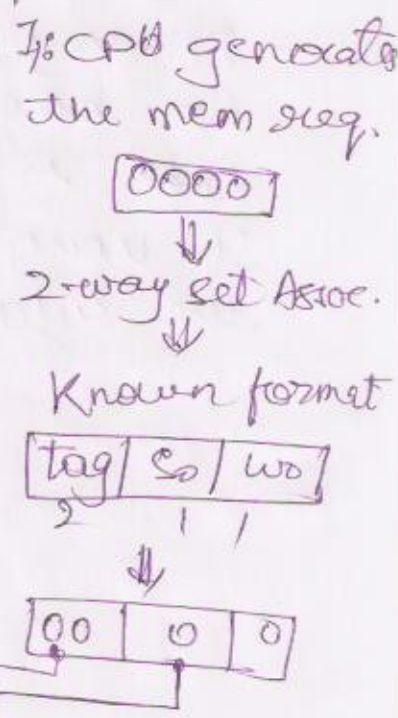 I1: CPU generates
the mem req.
0000
2-way set Assoc.
Known format
tag So wo
2 1 1
00 0 0